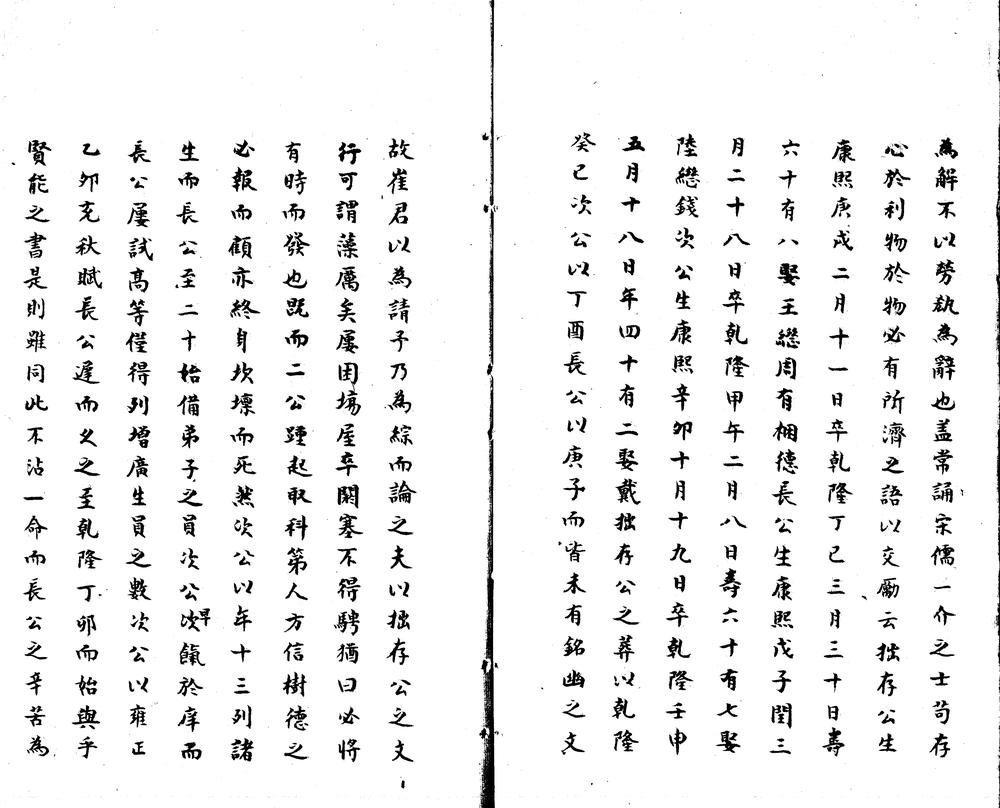 為解不以勞勩為辭也盖常誦宋儒一介之士苟存
心於利物於物必有所濟之語以交勵云拙存公生
康熙庚戌二月十一日卒乾隆丁巳三月三十日壽
六十有八娶王繼周有梱德長公生康熙戊子閏三
月二十八日卒乾隆甲午二月八日壽六十有七娶
陸繼錢次公生康熙辛卯十月十九日卒乾隆壬申
五月十八日年四十有二娶戴拙存公之葬以乾隆
癸巳次公以丁酉長公以庚子而皆未有銘幽之文
故崔君以為請予乃為綜而論之夫以拙存公之文
行可謂藻厲矣屢困塲屋卒閼塞不得騁猶曰必將
有時而發也既而二公踵起取科第人方信樹德之
必報而顧亦終身坎壈而死然次公以年十三列諸
生而長公至二十始備弟子之員次公次早餼於庠而
長公屢試高等僅得列增廣生員之數次公以雍正
乙卯充秋賦長公遲而久之至乾隆丁卯而始與乎
賢能之書是則雖同此不沾一命而長公之辛苦為